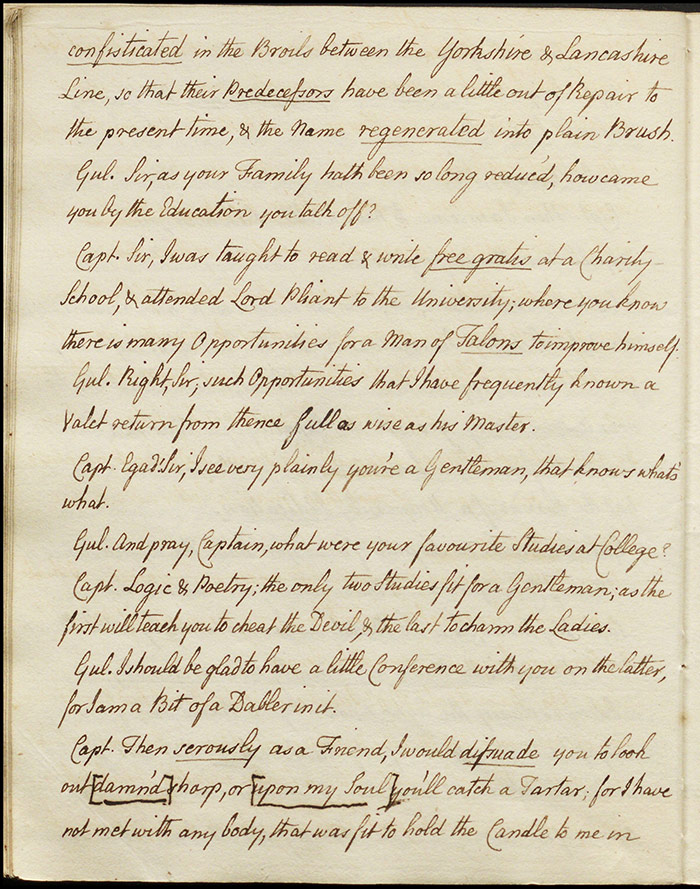 confisticated in the Broils between the Yorkshire & Lancashire
Line, so that their Predecessors have been a little out of Repair to
the present time, & the Name regenerated into plain Brush.
Gul. Sir, as your Family hath been so long reduc'd, how came
you by the Education you talk off?
Capt. Sir, I was taught to read & write free gratis at a Charity-
School, & attended Lord Pliant to the University; where you know
there is many Opportunities for a Man of Talons to improve himself.
Gul. Right, Sir; such Opportunities that I have frequently known a
Valet return from thence full as wise as his Master.
Capt. Egad! Sir, I see very plainly you're a Gentleman, that knows what's
what.
Gul. And pray, Captain, what were your favourite Studies at College?
Capt. Logic & Poetry; the only two Studies fit for a Gentleman; as the
first will teach you to cheat the Devil, & the last to charm the Ladies.
Gul. I should be glad to have a little Conference with you on the latter,
for I am a Bit of a Dabler in it.
Capt. Then serously as a Friend, I would disuade you to look
out [damn'd] sharp, or [upon my Soul] you'll catch a Tartar; for I have
not met with any body, that was fit to hold the Candle to me in